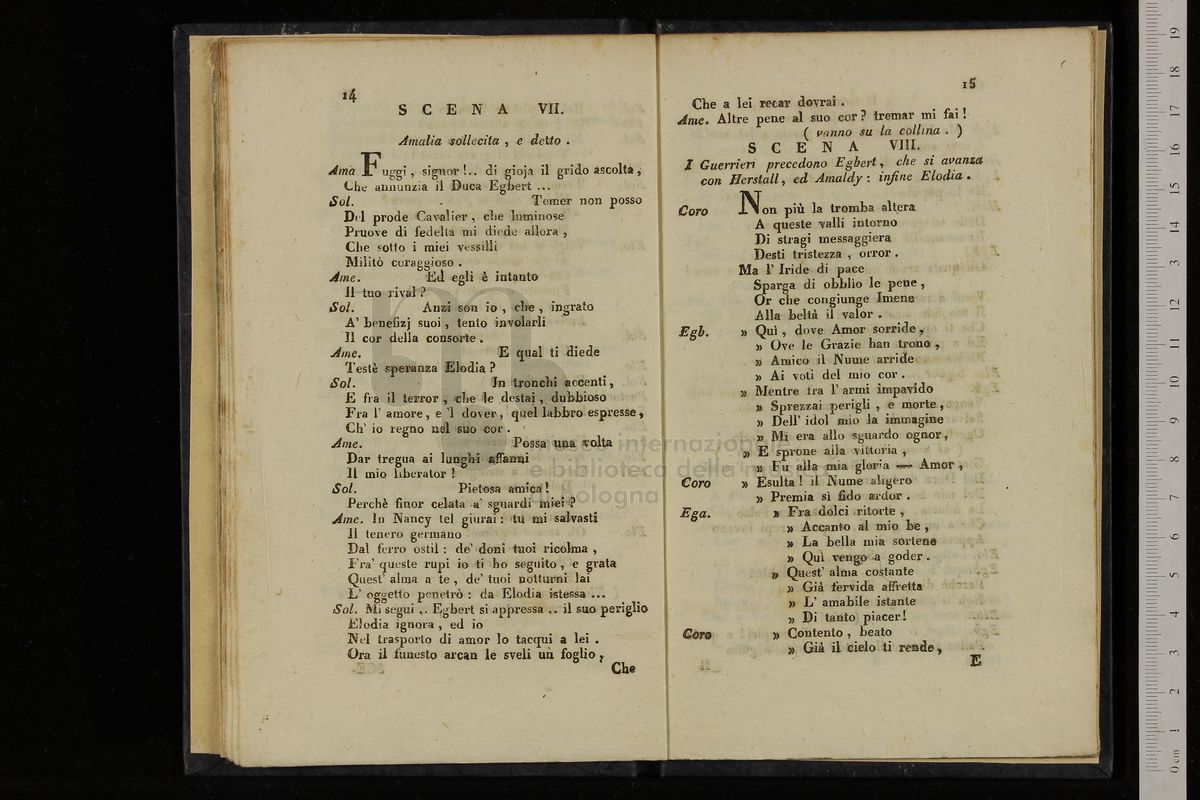 14
SCENA VII.
Amalia sollecita , e detto .
Ama Fuggi , signor !.. di gioja il grido ascolta ,
Che annunzia il Duca Egbert ...
Sol. Temer non posso
Del prode Cavalier , che luminose
Pruove di fedeltà mi diede allora ,
Che sotto i miei vessilli
Militò coraggioso .
Ame. Ed egli è intanto
Il tuo rival ?
Sol. Anzi son io , che , ingrato
A' benefizj suoi , tento involarli
Il cor della consorte .
Ame. E qual ti diede
Testè speranza Elodia ?
Sol. In tronchi accenti ,
E fra il terror , che le destai , dubbioso
Fra l' amore , e 'l dover , quel labbro espresse ,
Ch' io regno nel suo cor .
Ame. Possa una volta
Dar tregua ai lunghi affanni
Il mio liberator !
Sol. Pietosa amica !
Perchè finor celata a' sguardi miei ?
Ame. In Nancy tel giurai : tu mi salvasti
Il tenero germano
Dal ferro ostil : de' doni tuoi ricolma ,
Fra' queste rupi io ti ho seguito , e grata
Quest' alma a te , de' tuoi notturni lai
L' oggetto penetrò : da Elodia istessa ...
Sol. Mi segui .. Egbert si appressa .. il suo periglio
Elodia ignora , ed io
Nel trasporto di amor lo tacqui a lei .
Ora il funesto arcan le sveli un foglio ,
Che
15
Che a lei recar dovrai .
Ame. Altre pene al suo cor ? tremar mi fai !
( vanno su la collina . )
SCENA VIII.
I Guerrieri precedono Egbert , che si avanza
con Herstall , ed Amaldy : infine Elodia .
Coro Non più la tromba altera
A queste valli intorno
Di stragi messaggiera
Desti tristezza , orror .
Ma l' Iride di pace
Sparga di obblio le pene ,
Or che congiunge Imene
Alla beltà il valor .
Egb. » Quì , dove Amor sorride ,
» Ove le Grazie han trono ,
» Amico il Nume arride
» Ai voti del mio cor .
» Mentre fra l' armi impavido
» Sprezzai perigli , e morte ,
» Dell' idol mio la immagine
» Mi era allo sguardo ognor ,
» E sprone alla vittoria ,
» Fu alla mia gloria — Amor ,
Coro » Esulta ! il Nume aligero
» Premia sì fido ardor .
Ega. » Fra dolci ritorte ,
» Accanto al mio be ,
» La bella mia sortene
» Quì vengo a goder .
» Quest' alma costante
» Già fervida affretta
» L' amabile istante
» Di tanto piacer !
Coro » Contento , beato
» Già il cielo ti rende ,
E
museo internazionale
e biblioteca della musica
di bologna